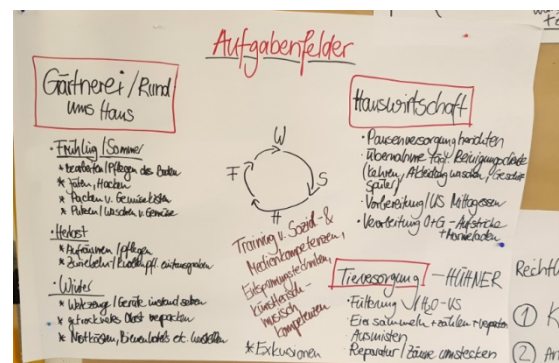 Aufgabenfelder
Gärtnerei/Rund
ums Haus
· Frühling/Sommer
* bearbeiten/Pflegen des Boden
* Jäten, Hacken
* Packen v. Gemüsekisten
* Putzen/waschen v. Gemüse
· Herbst
* Aufräumen/pflegen
* Zwiebeln
· Winter
* Werkzeug/Geräte instand setzen
* getrocknetes Obst verpacken
* Nistkästen, Bienenhotels etc. herstellen
W
S
H
F
Training v. Sozial- &
Medienkompetenzen,
Entspannungstechniken,
künstlerisch-
musisch
Kompetenzen
* Exkursionen
Hauswirtschaft
· Pausenversorgung herrichten
· Übernahme tägl. Reinigungsdienste
(kehren, Abteidig waschen, Geschirr
spülen)
· Vorbereitung/US Mittagessen
· Verarbeitung O+G - Aufstriche
+ Marmeladen
Tierversorgung - HÜHNER
· Fütterung / H2O-VS
· Eier sammeln + zählen + verpacken
· Ausmisten
· Reparatur/Zäune umstecken
Rechtl
① K
②